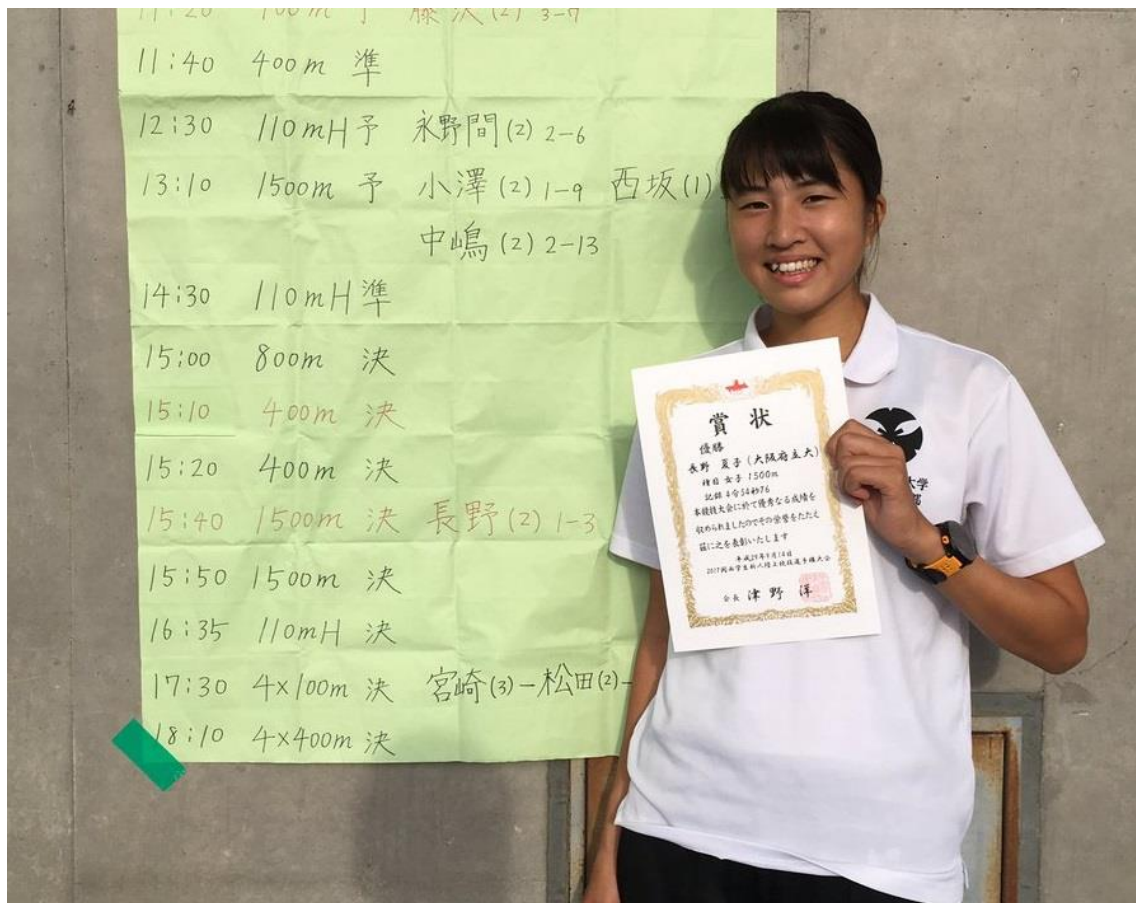 11:20 100m 予 藤沢(2) 3-7
11:40 400m 準
12:30 110mH 予 永野間(2) 2-6
13:10 1500m 予 小澤(2) 1-9 西坂(1)
中嶋(2) 2-13
14:30 110mH 準
15:00 800m 決
15:10 400m 決
15:20 400m 決
15:40 1500m 決 長野(2) 1-3
15:50 1500m 決
16:35 110mH 決
17:30 4×100m 決 宮崎(3)-松田(2)-
18:10 4×400m 決
賞状
優勝
長野 夏子(大阪府立大)
種目 女子1500m
記録 4分34秒76
本競技大会に於て優秀なる成績を
収められましたのでその栄誉をたたえ
茲に之を表彰いたします
平成29年9月14日
2017関西学生新人陸上競技選手権大会
会長 津野 洋
大学
部